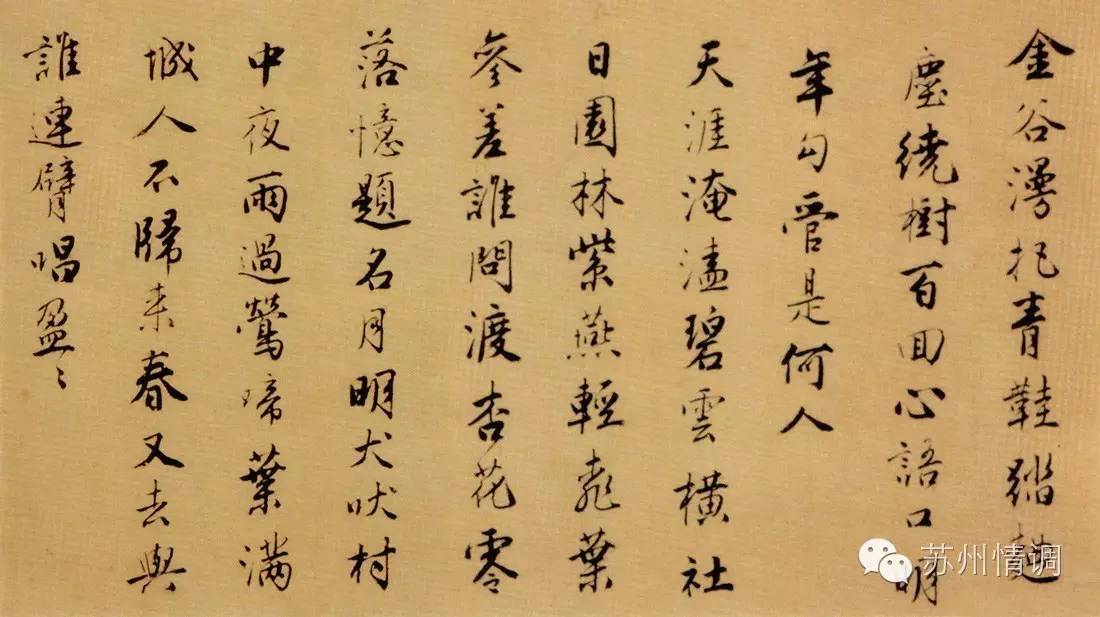 金谷漫把青鞋踏麯
塵繞樹百回心語口明
年勾管是何人
天涯淹溘碧雲橫社
日園林紫燕輕桃葉
參差誰問渡杏花零
落憶題名月明犬吠村
中夜雨過鶯啼葉滿
城人不歸來春又去與
誰連臂唱盈〻
苏州情调